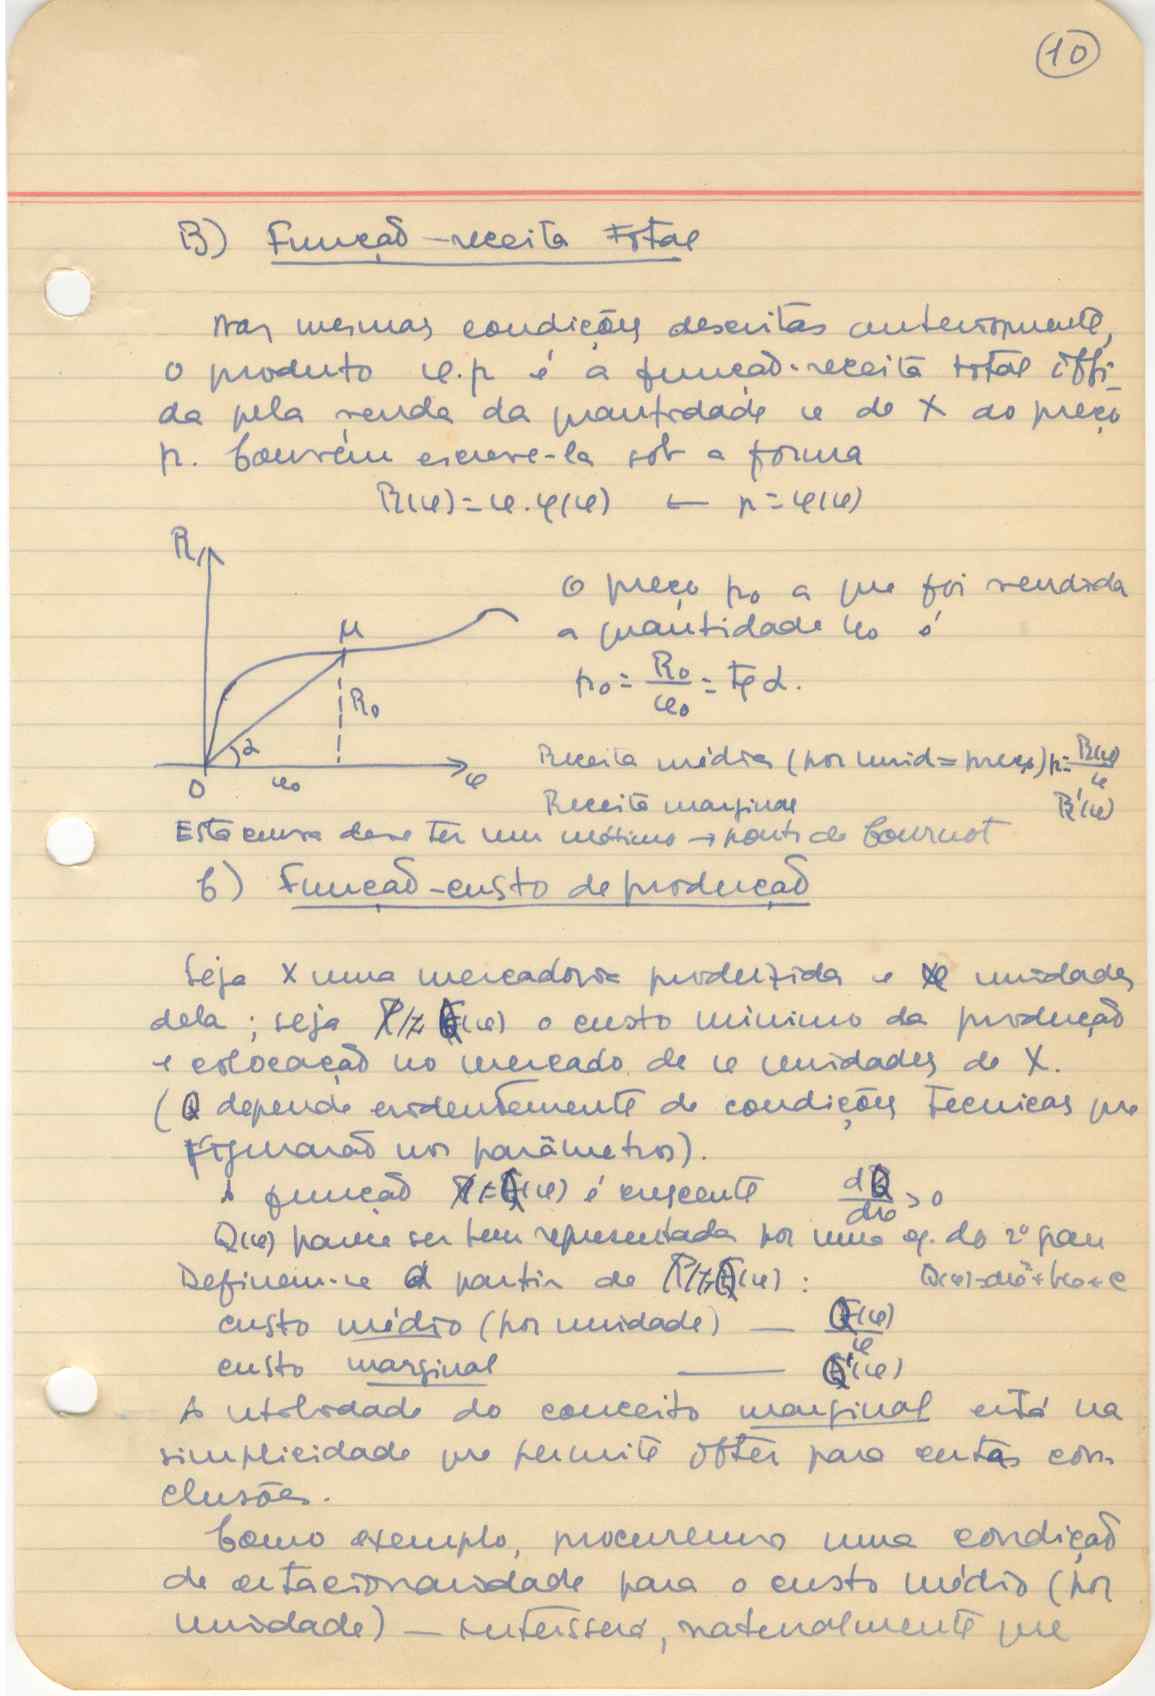 10
B) Função-receita total
Nas mesmas condições descritas anteriormente,
o produto u.p é a função-receita total obti-
da pela venda da quantidade u de X ao preço
p. Convém escrevê-la sob a forma
R(u)=u.φ(u) ← p=φ(u)
R
O preço p₀ a que foi vendida
a quantidade u₀ é
M
p₀ = R₀/u₀ = tg α.
R₀
α
Receita média (por unid = preço) p = R(u)/u
O u₀ u
Receita marginal R'(u)
Esta curva deve ter um máximo → ponto de Cournot
C) Função-custo de produção
Seja X uma mercadoria produzida e u unidades
dela; seja Q(u) o custo mínimo da produção
e colocação no mercado de u unidades de X.
(Q depende evidentemente de condições técnicas que
figurarão nos parâmetros).
A função Q(u) é crescente dQ/du > 0
Q(u) parece ser bem representada por uma eq. do 2º grau
Definem-se a partir de Q(u): Q(u)=au²+bu+c
custo médio (por unidade) — Q(u)/u
custo marginal — Q'(u)
A utilidade do conceito marginal está na
simplicidade que permite obter para certas con-
clusões.
Como exemplo, procuremos uma condição
de estacionaridade para o custo médio (por
unidade) — interessará, naturalmente que